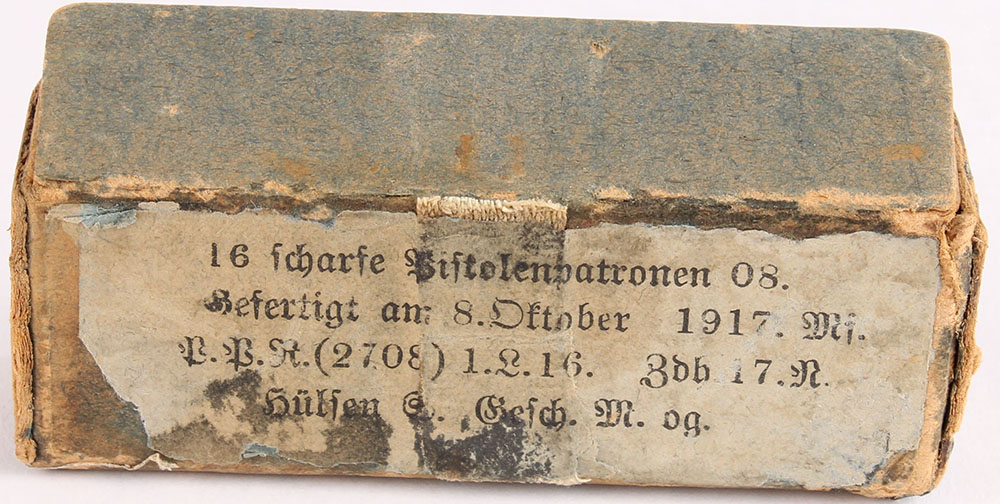 16 scharfe Pistolenpatronen 08.
Gefertigt am 8. Oktober 1917. Mf.
P.P.R.(2708) 1.L.16. Zdh. 17.N.
Hülsen S. Gesch. M. og.